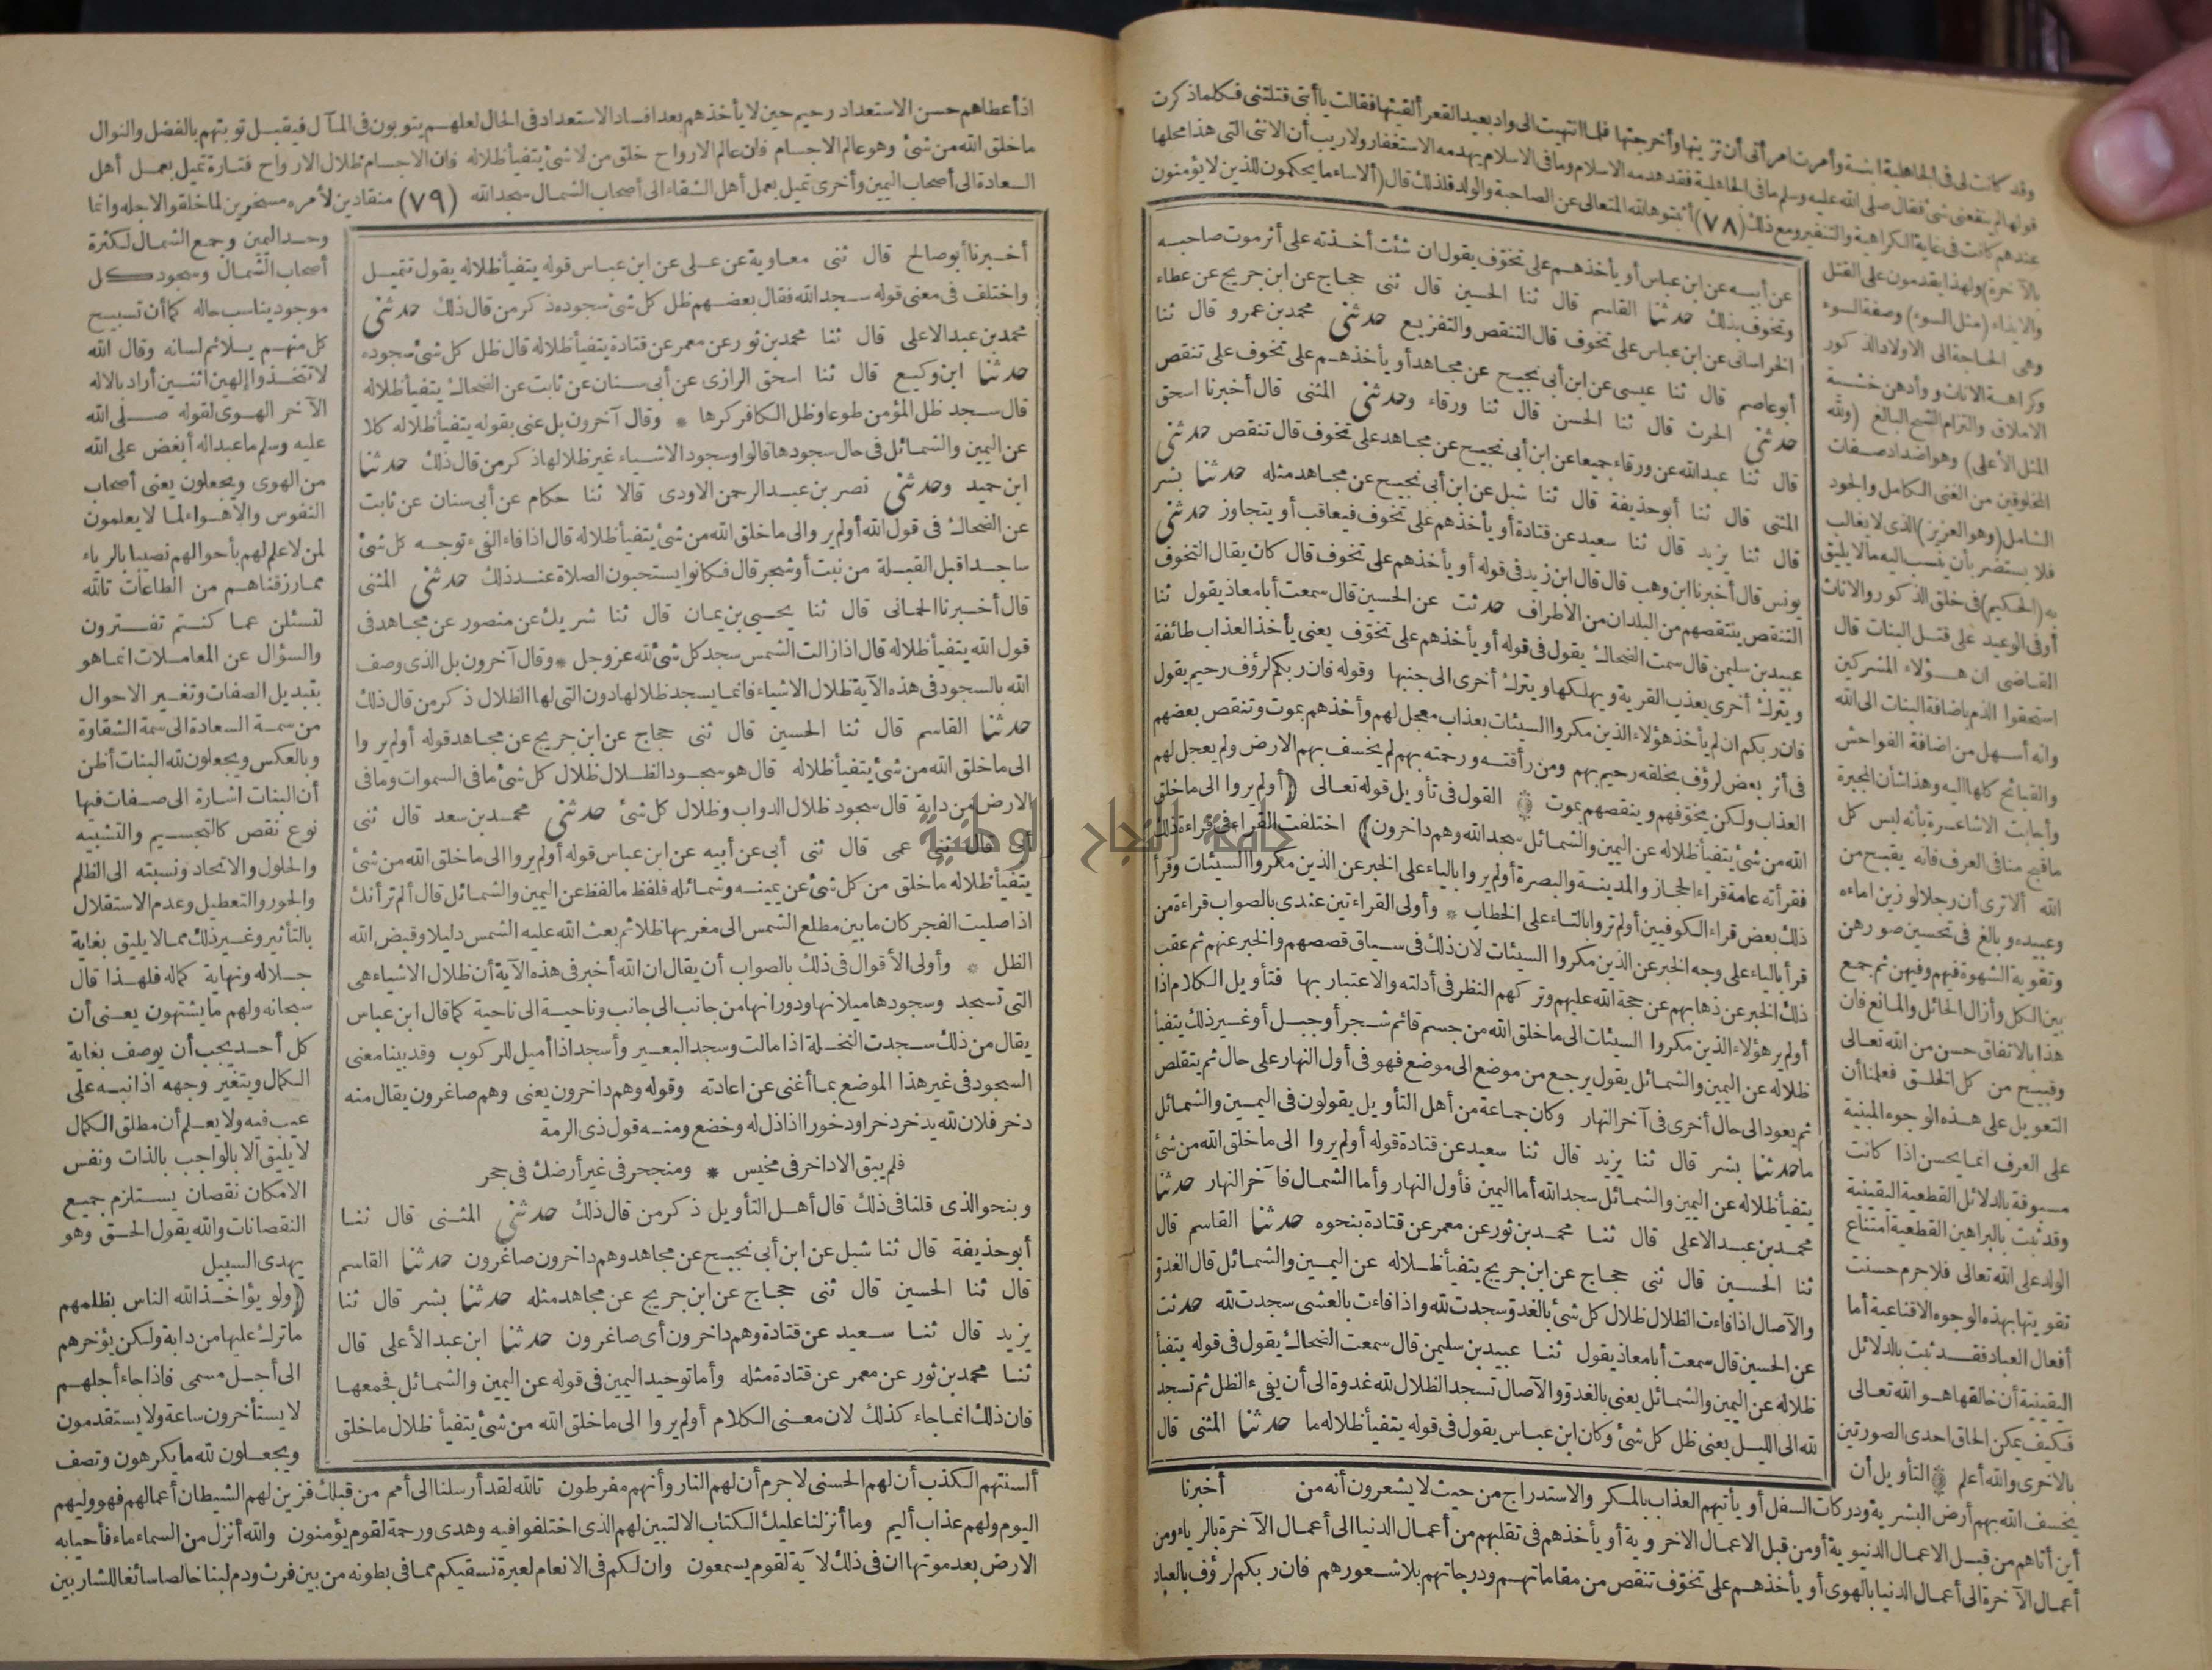 وقد كانت لى فى الجاهلية ابنة وأمرت امرأتى أن تزينها وأخرجتها فلما انتهيت الى واد بعيد القعر ألقيتها فقالت يا أبتى قتلتنى فكلما ذكرت
قولها لم ينفعنى شئ فقال صلى الله عليه وسلم ما فى الجاهلية فقد هدمه الاسلام وما فى الاسلام يهدمه الاستغفار ولا ريب أن الانثى التى هذا محلها
عندهم كانت فى غاية الكراهية والتنفير ومع ذلك (٧٨) أثبتوها لله المتعالى عن الصاحبة والولد فلذلك قال (ألا ساء ما يحكمون للذين لا يؤمنون
بالآخرة) ولهذا يقدمون على القتل
والايذاء (مثل السوء) وصفة السوء
وهى الحاجة الى الاولاد الذكور
وكراهة الاناث ووأدهن خشية
الاملاق والتزام الشح البالغ (ولله
المثل الأعلى) وهو اضداد صفات
المخلوقين من الغنى الكامل والجود
الشامل (وهو العزيز) الذى لا يغالب
فلا يستضر بأن ينسب اليه ما لا يليق
به (الحكيم) فى خلق الذكور والاناث
أو فى الوعيد على قتل البنات قال
القاضى ان هؤلاء المشركين
استحقوا الذم باضافة البنات الى الله
وانه أسهل من اضافة الفواحش
والقبائح كلها اليه وهذا شأن المجبرة
وأجابت الاشاعرة بأنه ليس كل
ما قبح منا فى العرف فانه يقبح من
الله ألا ترى أن رجلا لو زين اماءه
وعبيده وبالغ فى تحسين صورهن
وتقوية الشهوة فيهم وفيهن ثم جمع
بين الكل وأزال الحائل والمانع فان
هذا بالاتفاق حسن من الله تعالى
وقبيح من كل الخلق فعلمنا أن
التعويل على هذه الوجوه المبنية
على العرف انما يحسن اذا كانت
مسبوقة بالدلائل القطعية اليقينية
وقد ثبت بالبراهين القطعية امتناع
الولد على الله تعالى فلا جرم حسنت
تقويتها بهذه الوجوه الاقناعية أما
أفعال العباد فقد ثبت بالدلائل
اليقينية أن خالقها هو الله تعالى
فكيف يمكن الحاق احدى الصورتين
بالاخرى والله أعلم التأويل أن
عن أبيه عن ابن عباس أو يأخذهم على تخوّف يقول ان شئت أخذته على أثر موت صاحبه
وتخوف بذلك حدثنا القاسم قال ثنا الحسين قال ثنى حجاج عن ابن جريج عن عطاء
الخراسانى عن ابن عباس على تخوف قال التنقص والتفزيع حدثنى محمد بن عمرو قال ثنا
أبو عاصم قال ثنا عيسى عن ابن أبى نجيح عن مجاهد أو يأخذهم على تخوف على تنقص
حدثنى الحرث قال ثنا الحسن قال ثنا ورقاء وحدثنى المثنى قال أخبرنا اسحق
قال ثنا عبد الله عن ورقاء جميعا عن ابن أبى نجيح عن مجاهد على تخوف قال تنقص حدثنى
المثنى قال ثنا أبو حذيفة قال ثنا شبل عن ابن أبى نجيح عن مجاهد مثله حدثنا بشر
قال ثنا يزيد قال ثنا سعيد عن قتادة أو يأخذهم على تخوف فيعاقب أو يتجاوز حدثنى
يونس قال أخبرنا ابن وهب قال قال ابن زيد فى قوله أو يأخذهم على تخوف قال كان يقال التخوف
التنقص ينتقصهم من البلدان من الاطراف حدثت عن الحسين قال سمعت أبا معاذ يقول ثنا
عبيد بن سليمن قال سمعت الضحاك يقول فى قوله أو يأخذهم على تخوّف يعنى يأخذ العذاب طائفة
ويترك أخرى يعذب القرية ويهلكها ويترك أخرى الى جنبها وقوله فان ربكم لرؤف رحيم يقول
فان ربكم ان لم يأخذ هؤلاء الذين مكروا السيئات بعذاب معجل لهم وأخذهم بموت وتنقص بعضهم
فى أثر بعض لرؤف بخلقه رحيم بهم ومن رأفته ورحمته بهم لم يخسف بهم الارض ولم يعجل لهم
العذاب ولكن يخوّفهم وينقصهم بموت القول فى تأويل قوله تعالى (أولم يروا الى ما خلق
الله من شئ يتفيأ ظلاله عن اليمين والشمائل سجدا لله وهم داخرون) اختلفت القراء فى قراءة ذلك
فقرأته عامة قراء الحجاز والمدينة والبصرة أولم يروا بالياء على الخبر عن الذين مكروا السيئات وقرأ
ذلك بعض قراء الكوفيين أولم تروا بالتاء على الخطاب * وأولى القراءتين عندى بالصواب قراءة من
قرأ بالياء على وجه الخبر عن الذين مكروا السيئات لان ذلك فى سياق قصصهم والخبر عنهم ثم عقب
ذلك الخبر عن ذهابهم عن حجة الله عليهم وتركهم النظر فى أدلته والاعتبار بها فتأويل الكلام اذا
أولم ير هؤلاء الذين مكروا السيئات الى ما خلق الله من جسم قائم شجر أو جبل أو غير ذلك يتفيأ
ظلاله عن اليمين والشمائل يقول يرجع من موضع الى موضع فهو فى أول النهار على حال ثم يتقلص
ثم يعود الى حال أخرى فى آخر النهار وكان جماعة من أهل التأويل يقولون فى اليمين والشمائل
ما حدثنا بشر قال ثنا يزيد قال ثنا سعيد عن قتادة قوله أولم يروا الى ما خلق الله من شئ
يتفيأ ظلاله عن اليمين والشمائل سجدا لله أما اليمين فأول النهار وأما الشمال فآخر النهار حدثنا
محمد بن عبد الاعلى قال ثنا محمد بن ثور عن معمر عن قتادة بنحوه حدثنا القاسم قال
ثنا الحسين قال ثنى حجاج عن ابن جريج يتفيأ ظلاله عن اليمين والشمائل قال الغدوّ
والآصال اذا فاءت الظلال ظلال كل شئ بالغدوّ سجدت لله واذا فاءت بالعشى سجدت لله حدثت
عن الحسين قال سمعت أبا معاذ يقول ثنا عبيد بن سليمن قال سمعت الضحاك يقول فى قوله يتفيأ
ظلاله عن اليمين والشمائل يعنى بالغدوّ والآصال تسجد الظلال لله غدوة الى أن يفىء الظل ثم تسجد
لله الى الليل يعنى ظل كل شئ وكان ابن عباس يقول فى قوله يتفيأ ظلاله ما حدثنا المثنى قال
أخبرنا
يخسف الله بهم أرض البشرية ودركات السفل أو يأتيهم العذاب بالمكر والاستدراج من حيث لا يشعرون أنه من
أين أتاهم من قبل الاعمال الدنيوية أو من قبل الاعمال الاخروية أو يأخذهم فى تقلبهم من أعمال الدنيا الى أعمال الآخرة بالرياء ومن
أعمال الآخرة الى أعمال الدنيا بالهوى أو يأخذهم على تخوّف تنقص من مقاماتهم ودرجاتهم بلا شعورهم فان ربكم لرؤف بالعباد
اذ أعطاهم حسن الاستعداد رحيم حين لا يأخذهم بعد افساد الاستعداد فى الحال لعلهم يتوبون فى المآل فيقبل توبتهم بالفضل والنوال
ما خلق الله من شئ وهو عالم الاجسام فان عالم الارواح خلق من لا شئ يتفيأ ظلاله فان الاجسام ظلال الارواح فتارة تميل بعمل أهل
السعادة الى أصحاب اليمين وأخرى تميل بعمل أهل الشقاء الى أصحاب الشمال سجدا لله (٧٩) منقادين لأمره مسخرين لما خلقوا لاجله وانما
أخبرنا أبو صالح قال ثنى معاوية عن على عن ابن عباس قوله يتفيأ ظلاله يقول تتميل
واختلف فى معنى قوله سجدا لله فقال بعضهم ظل كل شئ سجوده ذكر من قال ذلك حدثنى
محمد بن عبد الاعلى قال ثنا محمد بن ثور عن معمر عن قتادة يتفيأ ظلاله قال ظل كل شئ سجوده
حدثنا ابن وكيع قال ثنا اسحق الرازى عن أبى سنان عن ثابت عن الضحاك يتفيأ ظلاله
قال سجد ظل المؤمن طوعا وظل الكافر كرها * وقال آخرون بل عنى بقوله يتفيأ ظلاله كلا
عن اليمين والشمائل فى حال سجودها قالوا وسجود الاشياء غير ظلالها ذكر من قال ذلك حدثنا
ابن حميد وحدثنى نصر بن عبد الرحمن الاودى قالا ثنا حكام عن أبى سنان عن ثابت
عن الضحاك فى قول الله أولم يروا الى ما خلق الله من شئ يتفيأ ظلاله قال اذا فاء الفىء توجه كل شئ
ساجدا قبل القبلة من نبت أو شجر قال فكانوا يستحبون الصلاة عند ذلك حدثنى المثنى
قال أخبرنا الحمانى قال ثنا يحيى بن يمان قال ثنا شريك عن منصور عن مجاهد فى
قول الله يتفيأ ظلاله قال اذا زالت الشمس سجد كل شئ لله عز وجل * وقال آخرون بل الذى وصف
الله بالسجود فى هذه الآية ظلال الاشياء فانما يسجد ظلالها دون التى لها الظلال ذكر من قال ذلك
حدثنا القاسم قال ثنا الحسين قال ثنى حجاج عن ابن جريج عن مجاهد قوله أولم يروا
الى ما خلق الله من شئ يتفيأ ظلاله قال هو سجود الظلال ظلال كل شئ ما فى السموات وما فى
الارض من دابة قال سجود ظلال الدواب وظلال كل شئ حدثنى محمد بن سعد قال ثنى
أبى قال ثنى عمى قال ثنى أبى عن أبيه عن ابن عباس قوله أولم يروا الى ما خلق الله من شئ
يتفيأ ظلاله ما خلق من كل شئ عن يمينه وشمائله فلفظ ما لفظ عن اليمين والشمائل قال ألم تر أنك
اذا صليت الفجر كان ما بين مطلع الشمس الى مغربها ظلا ثم بعث الله عليه الشمس دليلا وقبض الله
الظل * وأولى الأقوال فى ذلك بالصواب أن يقال ان الله أخبر فى هذه الآية أن ظلال الاشياء هى
التى تسجد وسجودها ميلانها ودورانها من جانب الى جانب وناحية الى ناحية كما قال ابن عباس
يقال من ذلك سجدت النخلة اذا مالت وسجد البعير وأسجد اذا أميل للركوب وقد بينا معنى
السجود فى غير هذا الموضع بما أغنى عن اعادته وقوله وهم داخرون يعنى وهم صاغرون يقال منه
دخر فلان لله يدخر دخرا ودخورا اذا ذل له وخضع ومنه قول ذى الرمة
فلم يبق الا داخر فى مخيس * ومنجحر فى غير أرضك فى جحر
وبنحو الذى قلنا فى ذلك قال أهل التأويل ذكر من قال ذلك حدثنى المثنى قال ثنا
أبو حذيفة قال ثنا شبل عن ابن أبى نجيح عن مجاهد وهم داخرون صاغرون حدثنا القاسم
قال ثنا الحسين قال ثنى حجاج عن ابن جريج عن مجاهد مثله حدثنا بشر قال ثنا
يزيد قال ثنا سعيد عن قتادة وهم داخرون أى صاغرون حدثنا ابن عبد الأعلى قال
ثنا محمد بن ثور عن معمر عن قتادة مثله وأما توحيد اليمين فى قوله عن اليمين والشمائل فجمعها
فان ذلك انما جاء كذلك لان معنى الكلام أولم يروا الى ما خلق الله من شئ يتفيأ ظلال ما خلق
وحد اليمين وجمع الشمال لكثرة
أصحاب الشمال وسجود كل
موجود يناسب حاله كما أن تسبيح
كل منهم يلائم لسانه وقال الله
لا تتخذوا إلهين اثنين أراد بالاله
الآخر الهوى لقوله صلى الله
عليه وسلم ما عبد اله أبغض على الله
من الهوى ويجعلون يعنى أصحاب
النفوس والاهواء لما لا يعلمون
لمن لا علم لهم بأحوالهم نصيبا بالرياء
مما رزقناهم من الطاعات تالله
لتسئلن عما كنتم تفترون
والسؤال عن المعاملات انما هو
بتبديل الصفات وتغير الاحوال
من سمة السعادة الى سمة الشقاوة
وبالعكس ويجعلون لله البنات أظن
أن البنات اشارة الى صفات فيها
نوع نقص كالتجسيم والتشبيه
والحلول والاتحاد ونسبته الى الظلم
والجور والتعطيل وعدم الاستقلال
بالتأثير وغير ذلك مما لا يليق بغاية
جلاله ونهاية كماله فلهذا قال
سبحانه ولهم ما يشتهون يعنى أن
كل أحد يحب أن يوصف بغاية
الكمال ويتغير وجهه اذا نبه على
عيب فيه ولا يعلم أن مطلق الكمال
لا يليق الا بالواجب بالذات ونفس
الامكان نقصان يستلزم جميع
النقصانات والله يقول الحق وهو
يهدى السبيل
(ولو يؤاخذ الله الناس بظلمهم
ما ترك عليها من دابة ولكن يؤخرهم
الى أجل مسمى فاذا جاء أجلهم
لا يستأخرون ساعة ولا يستقدمون
ويجعلون لله ما يكرهون وتصف
ألسنتهم الكذب أن لهم الحسنى لا جرم أن لهم النار وأنهم مفرطون تالله لقد أرسلنا الى أمم من قبلك فزين لهم الشيطان أعمالهم فهو وليهم
اليوم ولهم عذاب أليم وما أنزلنا عليك الكتاب الا لتبين لهم الذى اختلفوا فيه وهدى ورحمة لقوم يؤمنون والله أنزل من السماء ماء فأحيا به
الارض بعد موتها ان فى ذلك لآية لقوم يسمعون وان لكم فى الانعام لعبرة نسقيكم مما فى بطونه من بين فرث ودم لبنا خالصا سائغا للشاربين
جامعة النجاح الوطنية